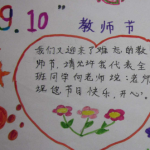 9.10"
教师节
我们又迎来了难忘的教
师节，请允许我代表全
班同学向老师说：老师
祝您节日快乐，开心！